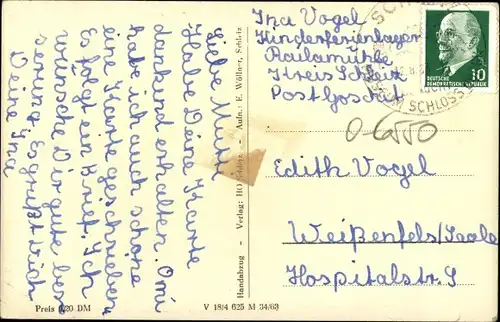 Liebe Mutti
Habe Deine Karte
dankend erhalten. Omi
habe ich auch schone
eine Karte geschrieben.
Es folgt ein Brief. Ich
wünsche Dir gute bes
serung. Es grüßt Dich
Deine Ina
Preis 0,20 DM
Handabzug - Verlag: HO Schleiz - Aufn.: E. Wöllner, Schleiz
V 18/4 625 M 34/63
Ina Vogel
Kinderferienlager
Raulamühle
Kreis Schleiz
Post Göschitz
DEUTSCHE
DEMOKRATISCHE REPUBLIK
10
SCHLOSS
0-6550
Edith Vogel
Weißenfels/Saale
Hospitalstr. 9